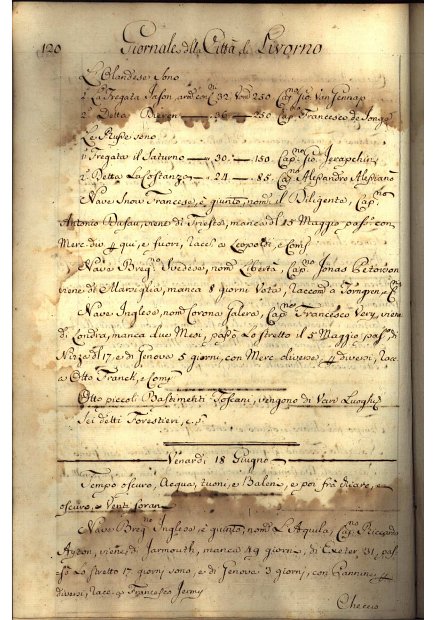 120 Giornale della Città di Livorno
Le Olandese Sono
1a La Fregata Jason, 32 250 Capno Gio. Van Jennap
2a Detta 36 250 Francesco de Jonge
Le Russe sono
1a Fregata il Saturno 30 150 Capno Gio.
2a Detta La Costanza 24 85 Capno Alessandro
Nave Snow Francese, è giunto, nom. il Diligente, Capno
Antonio viene di Trieste, manca di 15 Maggio pas.o con
Merc. div. p qui, e fuori, Racc. a Leopoldi, e Comp.
Nave Svedese, nom. Libertà, Capno Jonas
viene di Marsiglia, manca 8 giorni Vota, Raccom. a Torngren, e
Nave Inglese, nom. Corona Salera, Capno Francesco Very, viene
di Londra, manca due Mesi, passò Lo stretto il 5 Maggio pas.o di
Nizza di 17, e di Genova 5 giorni, con Merc. diverse, p diversi, Racc.
a Otto Franck, e Comp.
Otto piccoli Bastimenti Toscani, vengono di Vari Luoghi
Sei detti Forestieri,
Venardì 18 Giugno
Tempo oscuro, Acqua, tuoni, e Baleni, e poi frà di care, e
oscuro, e Venti foran
Nave Inglese, è giunto, nom. L'Aquila, Capno Riccardo
Ayton, viene, di Jarmouth, manca 49 giorni, di Exeter, 31, pas-
sò Lo stretto 17 giorni sono, e di Genova 3 giorni, con
diversi, Racc. a Francesco Jermy